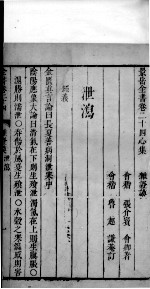 景岳全書卷二十四心集 雜證謨
會稽 張介賓 會卿著
會稽 魯超 謙菴訂
泄瀉
經義
金匱真言論曰長夏善病洞泄寒中
陰陽應象大論曰清氣在下則生飧泄濁氣在上則生䐜脹
濕勝則濡泄○春傷於風夏生飧泄○水穀之寒熱感則害